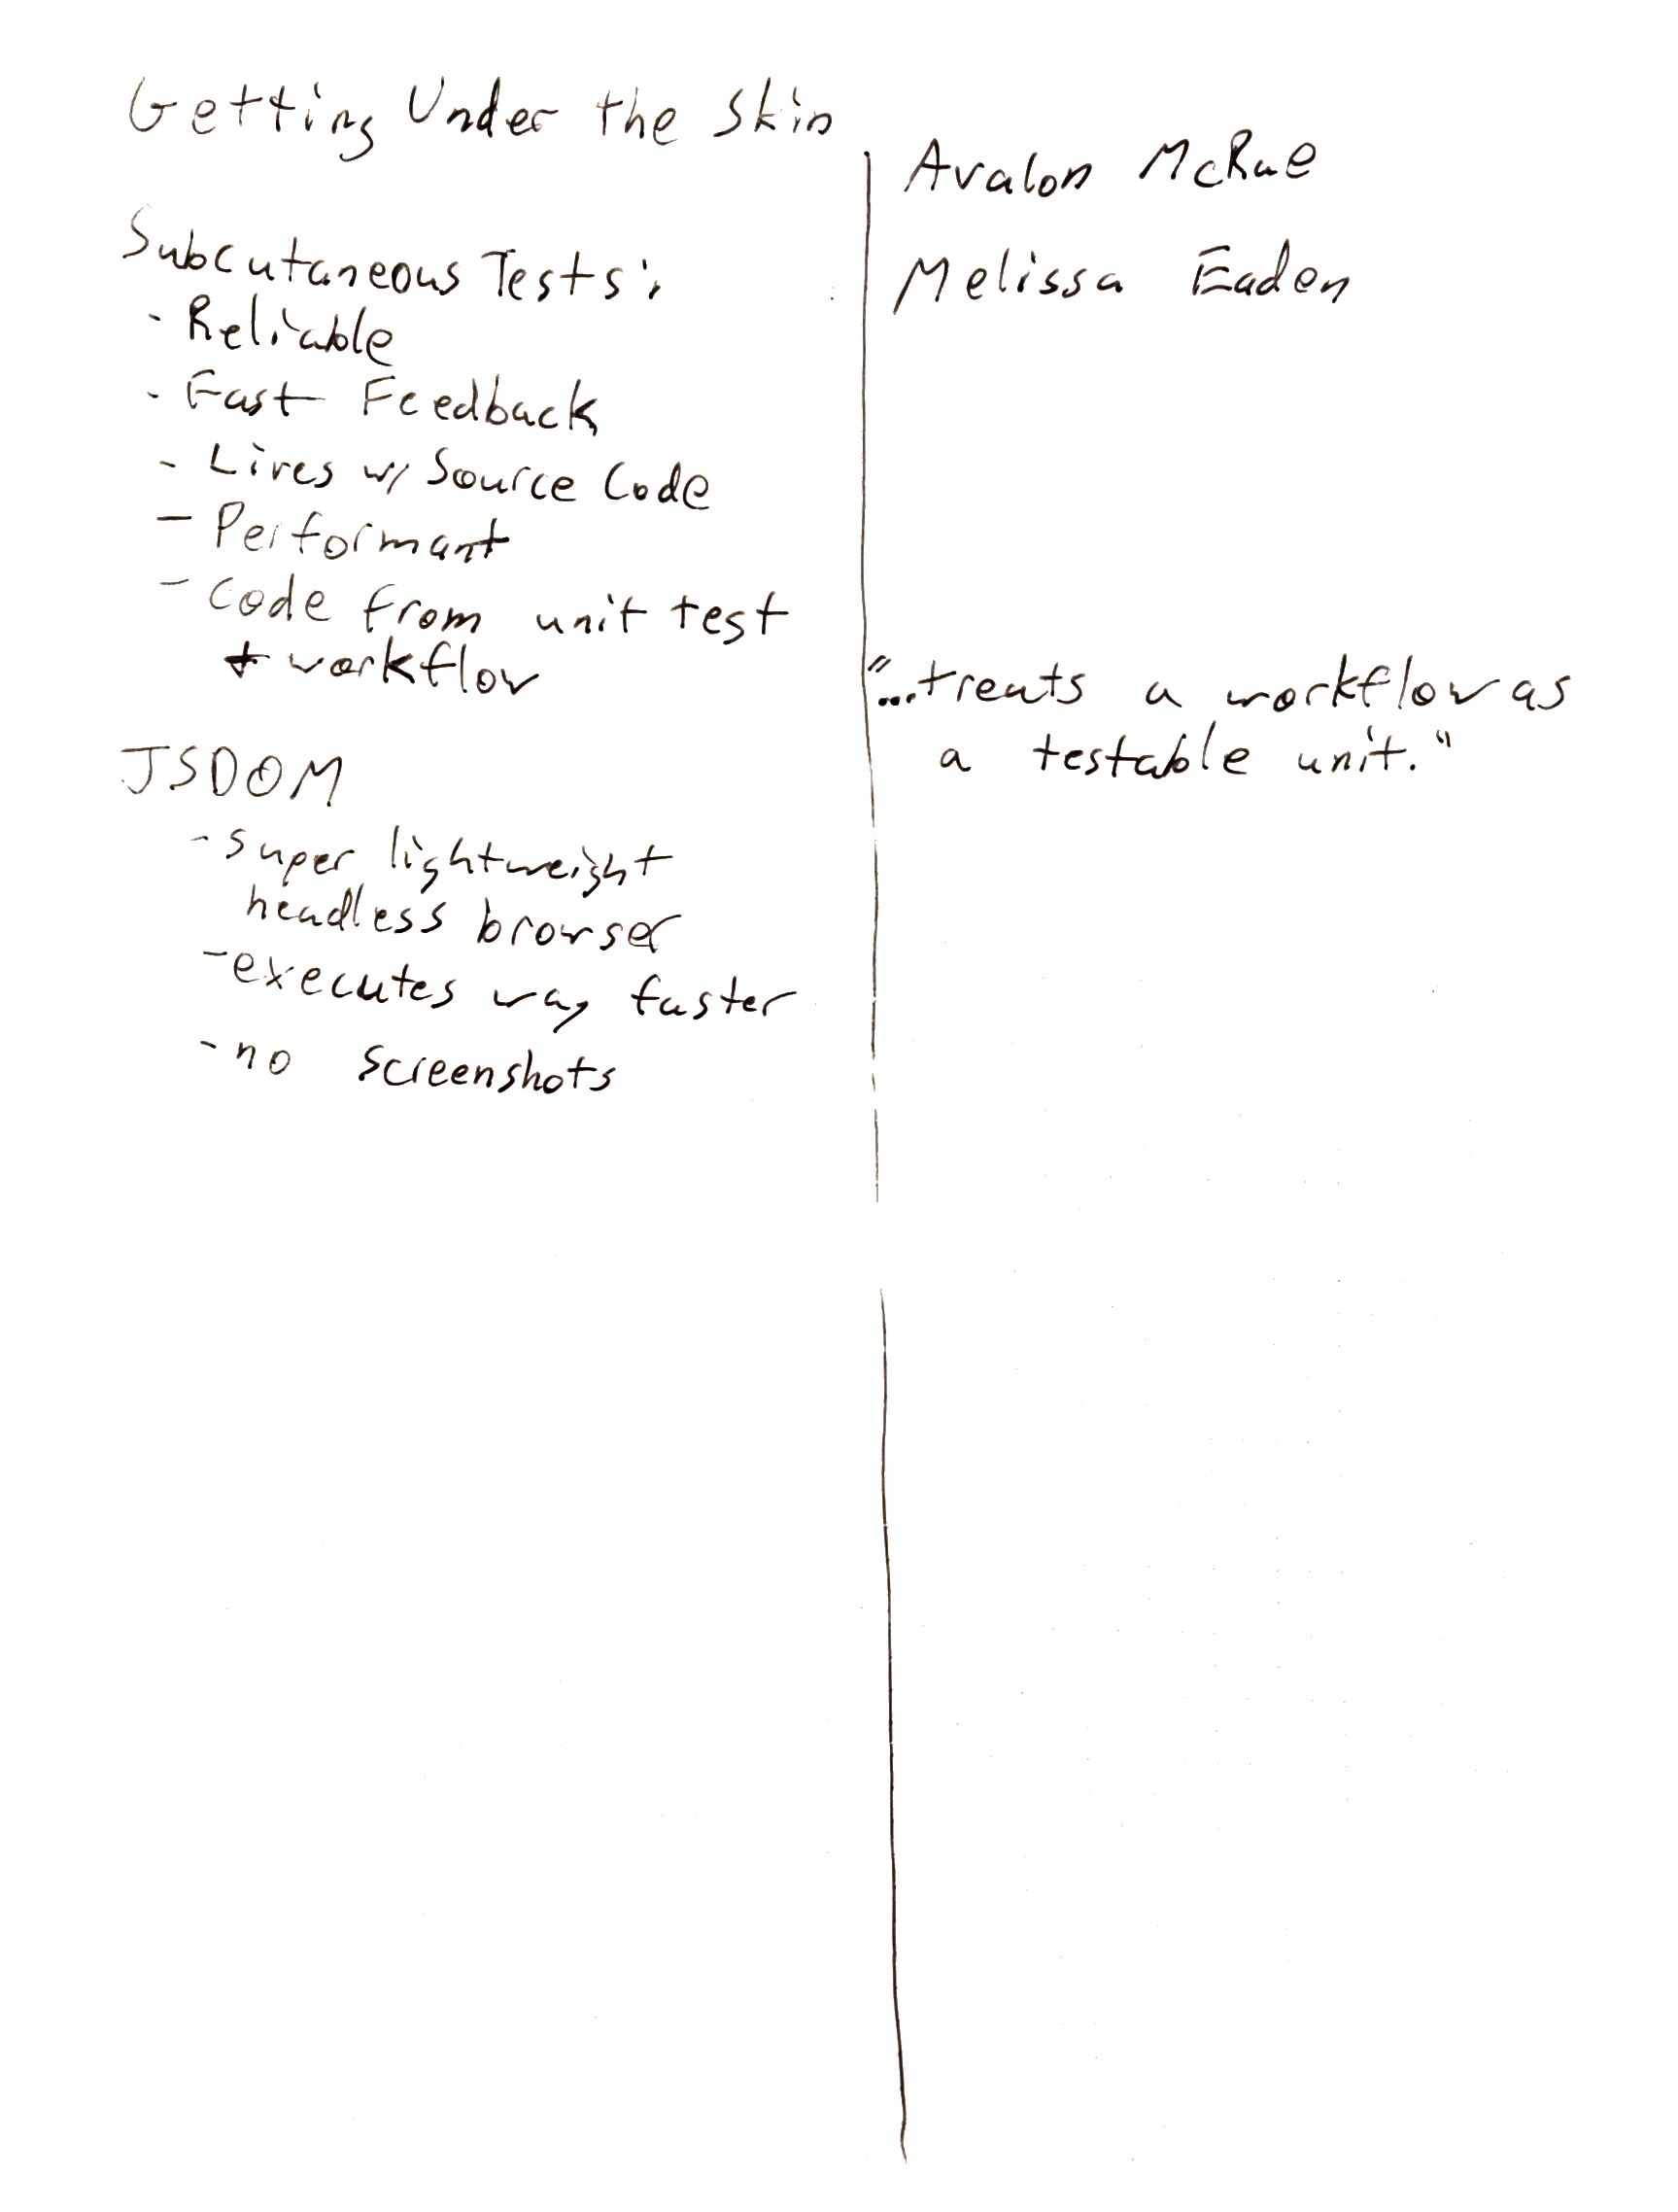 Getting Under the Skin
Subcutaneous Tests:
- Reliable
- Fast Feedback
- Lives w/ Source Code
- Performant
- Code from unit test
+ workflow
JSDOM
- super lightweight
headless browser
- executes way faster
- no screenshots
Avalon McRae
Melissa Eaden
"...treats a workflow as
a testable unit."